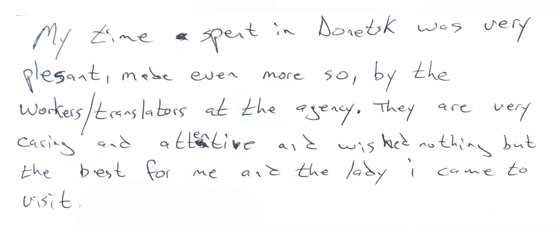 My time spent in Donetsk was very
plesant, made even more so, by the
workers/translators at the agency. They are very
caring and attentive and wished nothing but
the best for me and the lady i came to
visit.